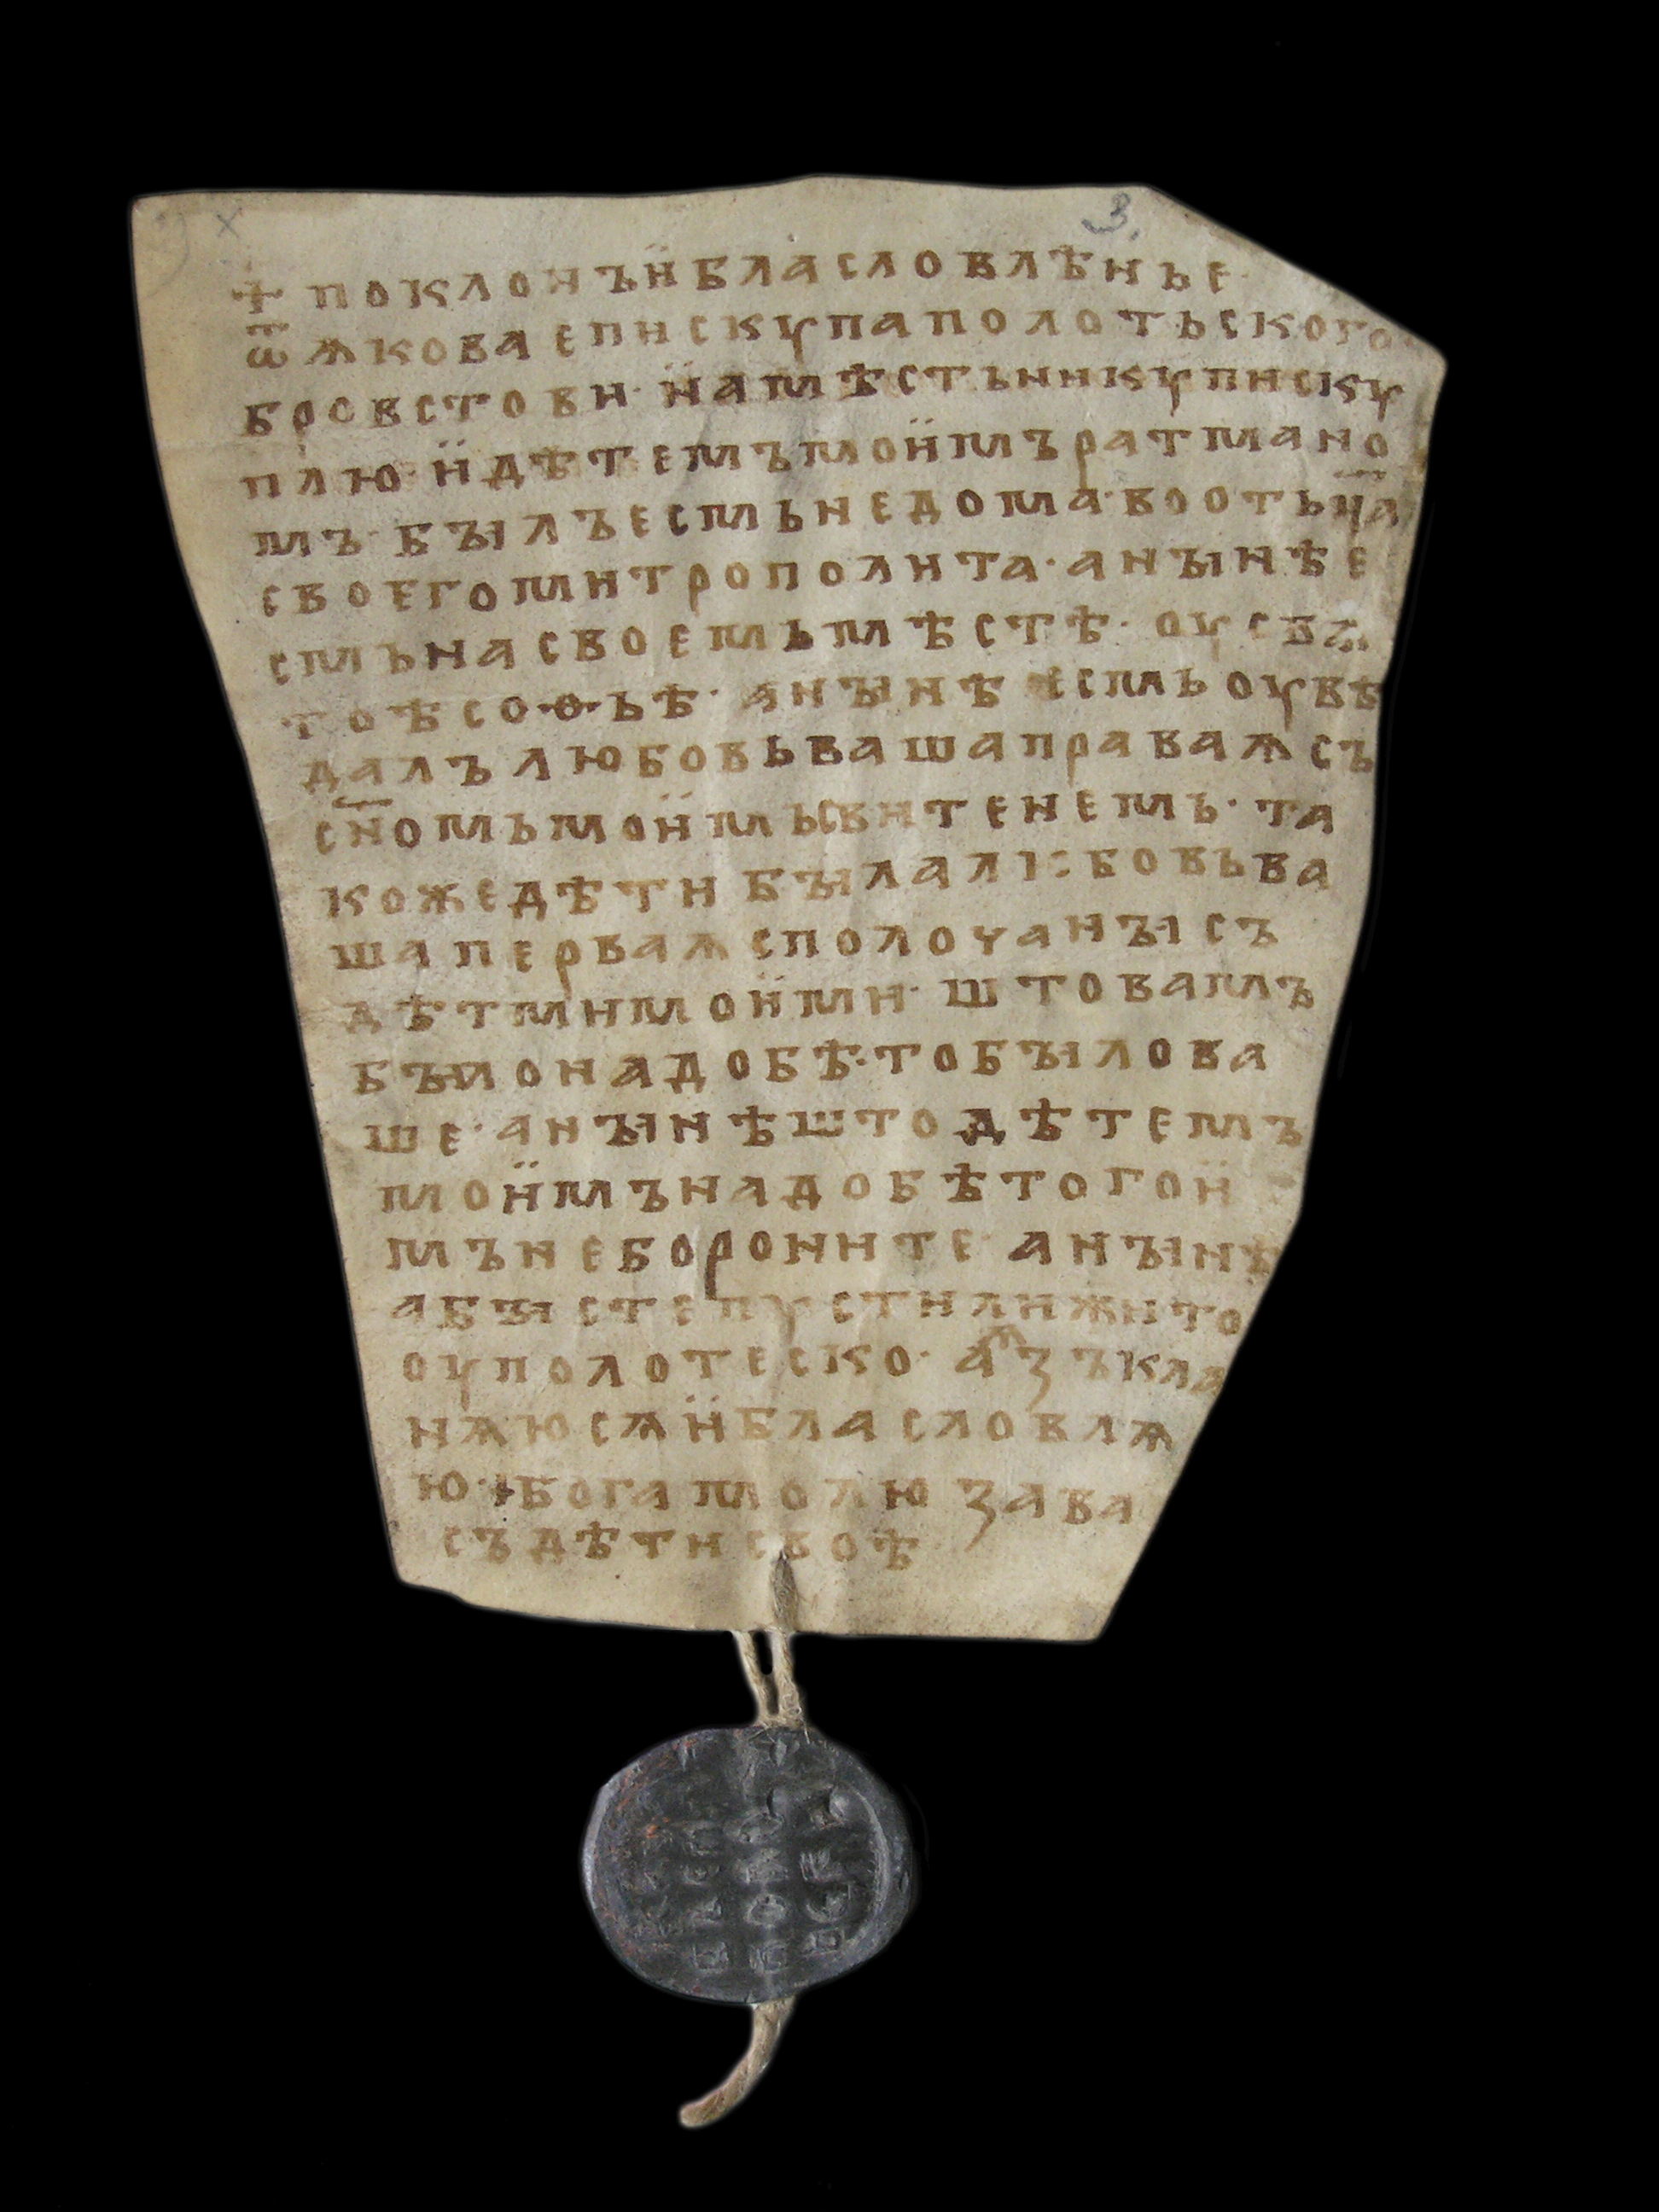 3.
✝ поклонъ ꙇ̈ бласловлѣнье
ѿ ѧкова епискꙋпа полотьского
бровстови· нámѣстьникꙋ пискꙋ
плю· ӥ дѣтемъ моӥмъ ратмано
мъ· былъ есмь не дома· во отьц҃а
своего митрополита· а нынѣ е
смь на своемь мѣстѣ· оу свѧ
тоѣ соѳьѣ· а нынѣ есмь оувѣ
далъ любовь ваша праваѧ съ
сн҃омь моӥмь св витенемь· та
ко же дѣти была любовь ва
ша перваѧ с полочаны съ
дѣтми моӥми· што вамъ
было надобѣ· то было ва
ше· а нынѣ што дѣтемъ
моӥмъ надобѣ того ӥ
мъ не бороните а нынѣ
а бысте пꙋстили жито
оу полотеско· а ꙗзъ кла
нѧюсѧ ӥ бласловлѧ
ю· и бога молю за ва
съ дѣти своѣ